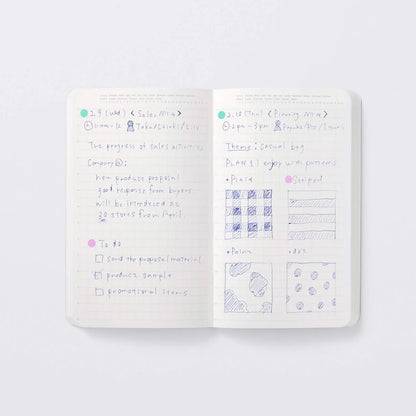 2.9 (Wed) < Sales Mtg >
11am - 12
The progress of sales activities
Company A:
new produce proposal
good response from buyers
will be introduced at
20 stores from April.
To do
send the proposal material
product sample
promotional items
(Thu) < Planning Mtg >
2pm - 3pm
Theme: Casual bag
PLAN 1 enjoy with patterns
• Plaid
Striped
• dot